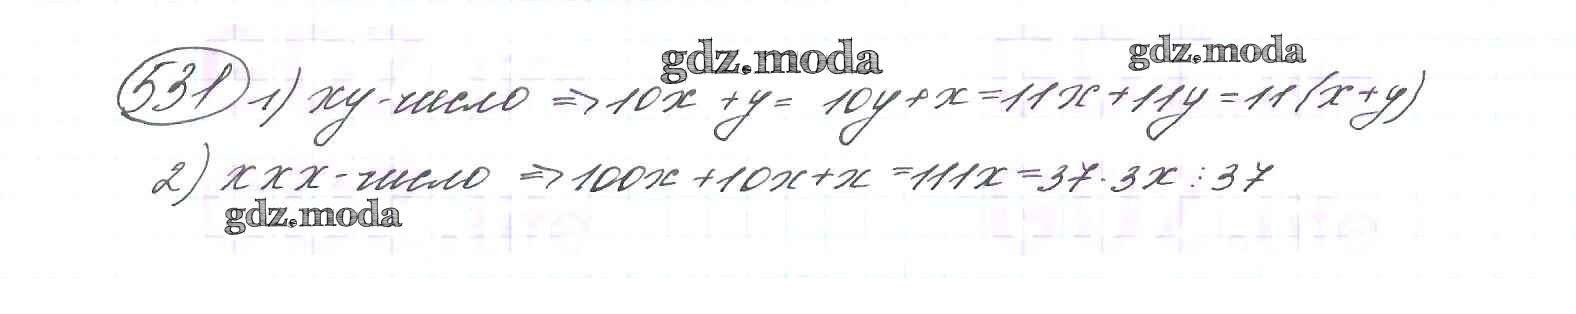 gdz.moda gdz.moda
531 1) xy - число => 10x + y = 10y + x = 11x + 11y = 11(x+y)
2) xxx - число => 100x + 10x + x = 111x = 37·3x ⋮ 37
gdz.moda